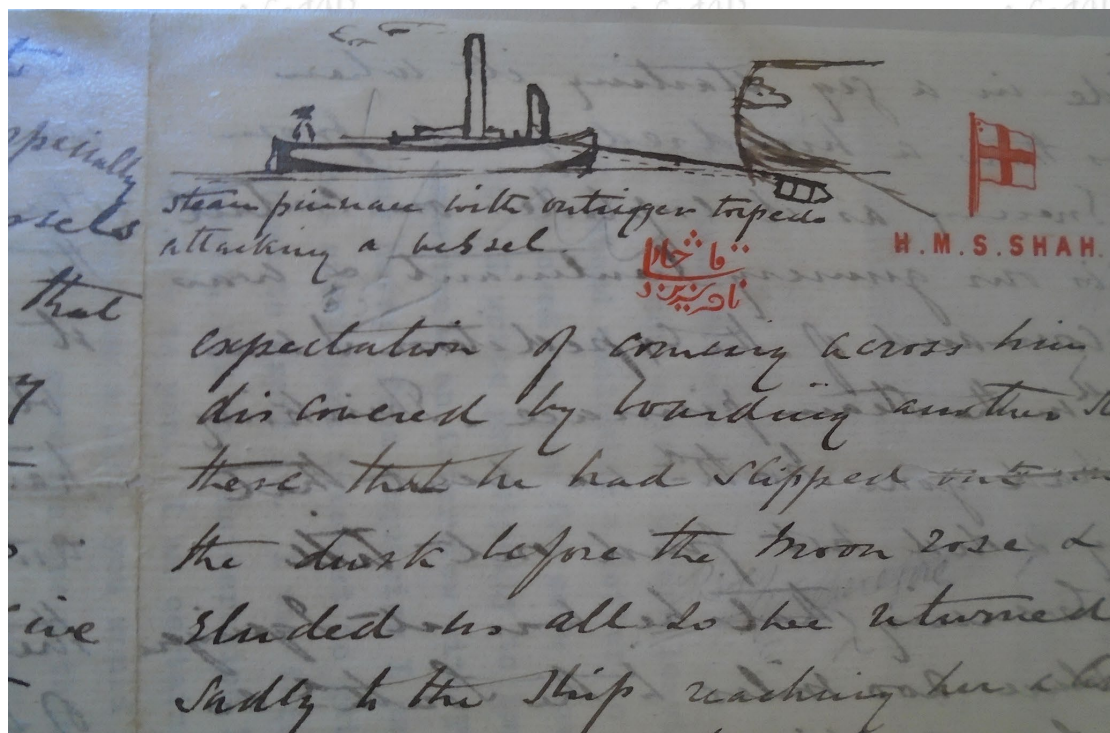 steam pinnace with outrigger torpedo
attacking a vessel
H.M.S.SHAH.
expectation of coming across him
discovered by boarding another
there that he had slipped out
the dusk before the moon rose &
eluded us all so we returned
sadly to the ship reaching her
specially
ssels
that
y
ive